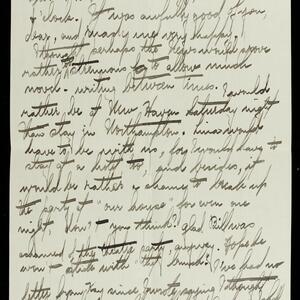 o'clock. It was awfully good of you,
dear, and made me very happy.
I thought perhaps the news would prove
rather strenuous to allow much
more writing between times. I would
rather be at New Haven Saturday night
than stay in Northampton. Lina would
have to be with us, for I would have to
stay at a hotel too, and besides, it
would be rather a shame to break up
the party at "our house" for even one
night don't you think? Glad Bill was
ashamed of the theatre party anyway. Hope he
won't stick with "the bunch". We had no
letter from Kay since, wrote saying I thought